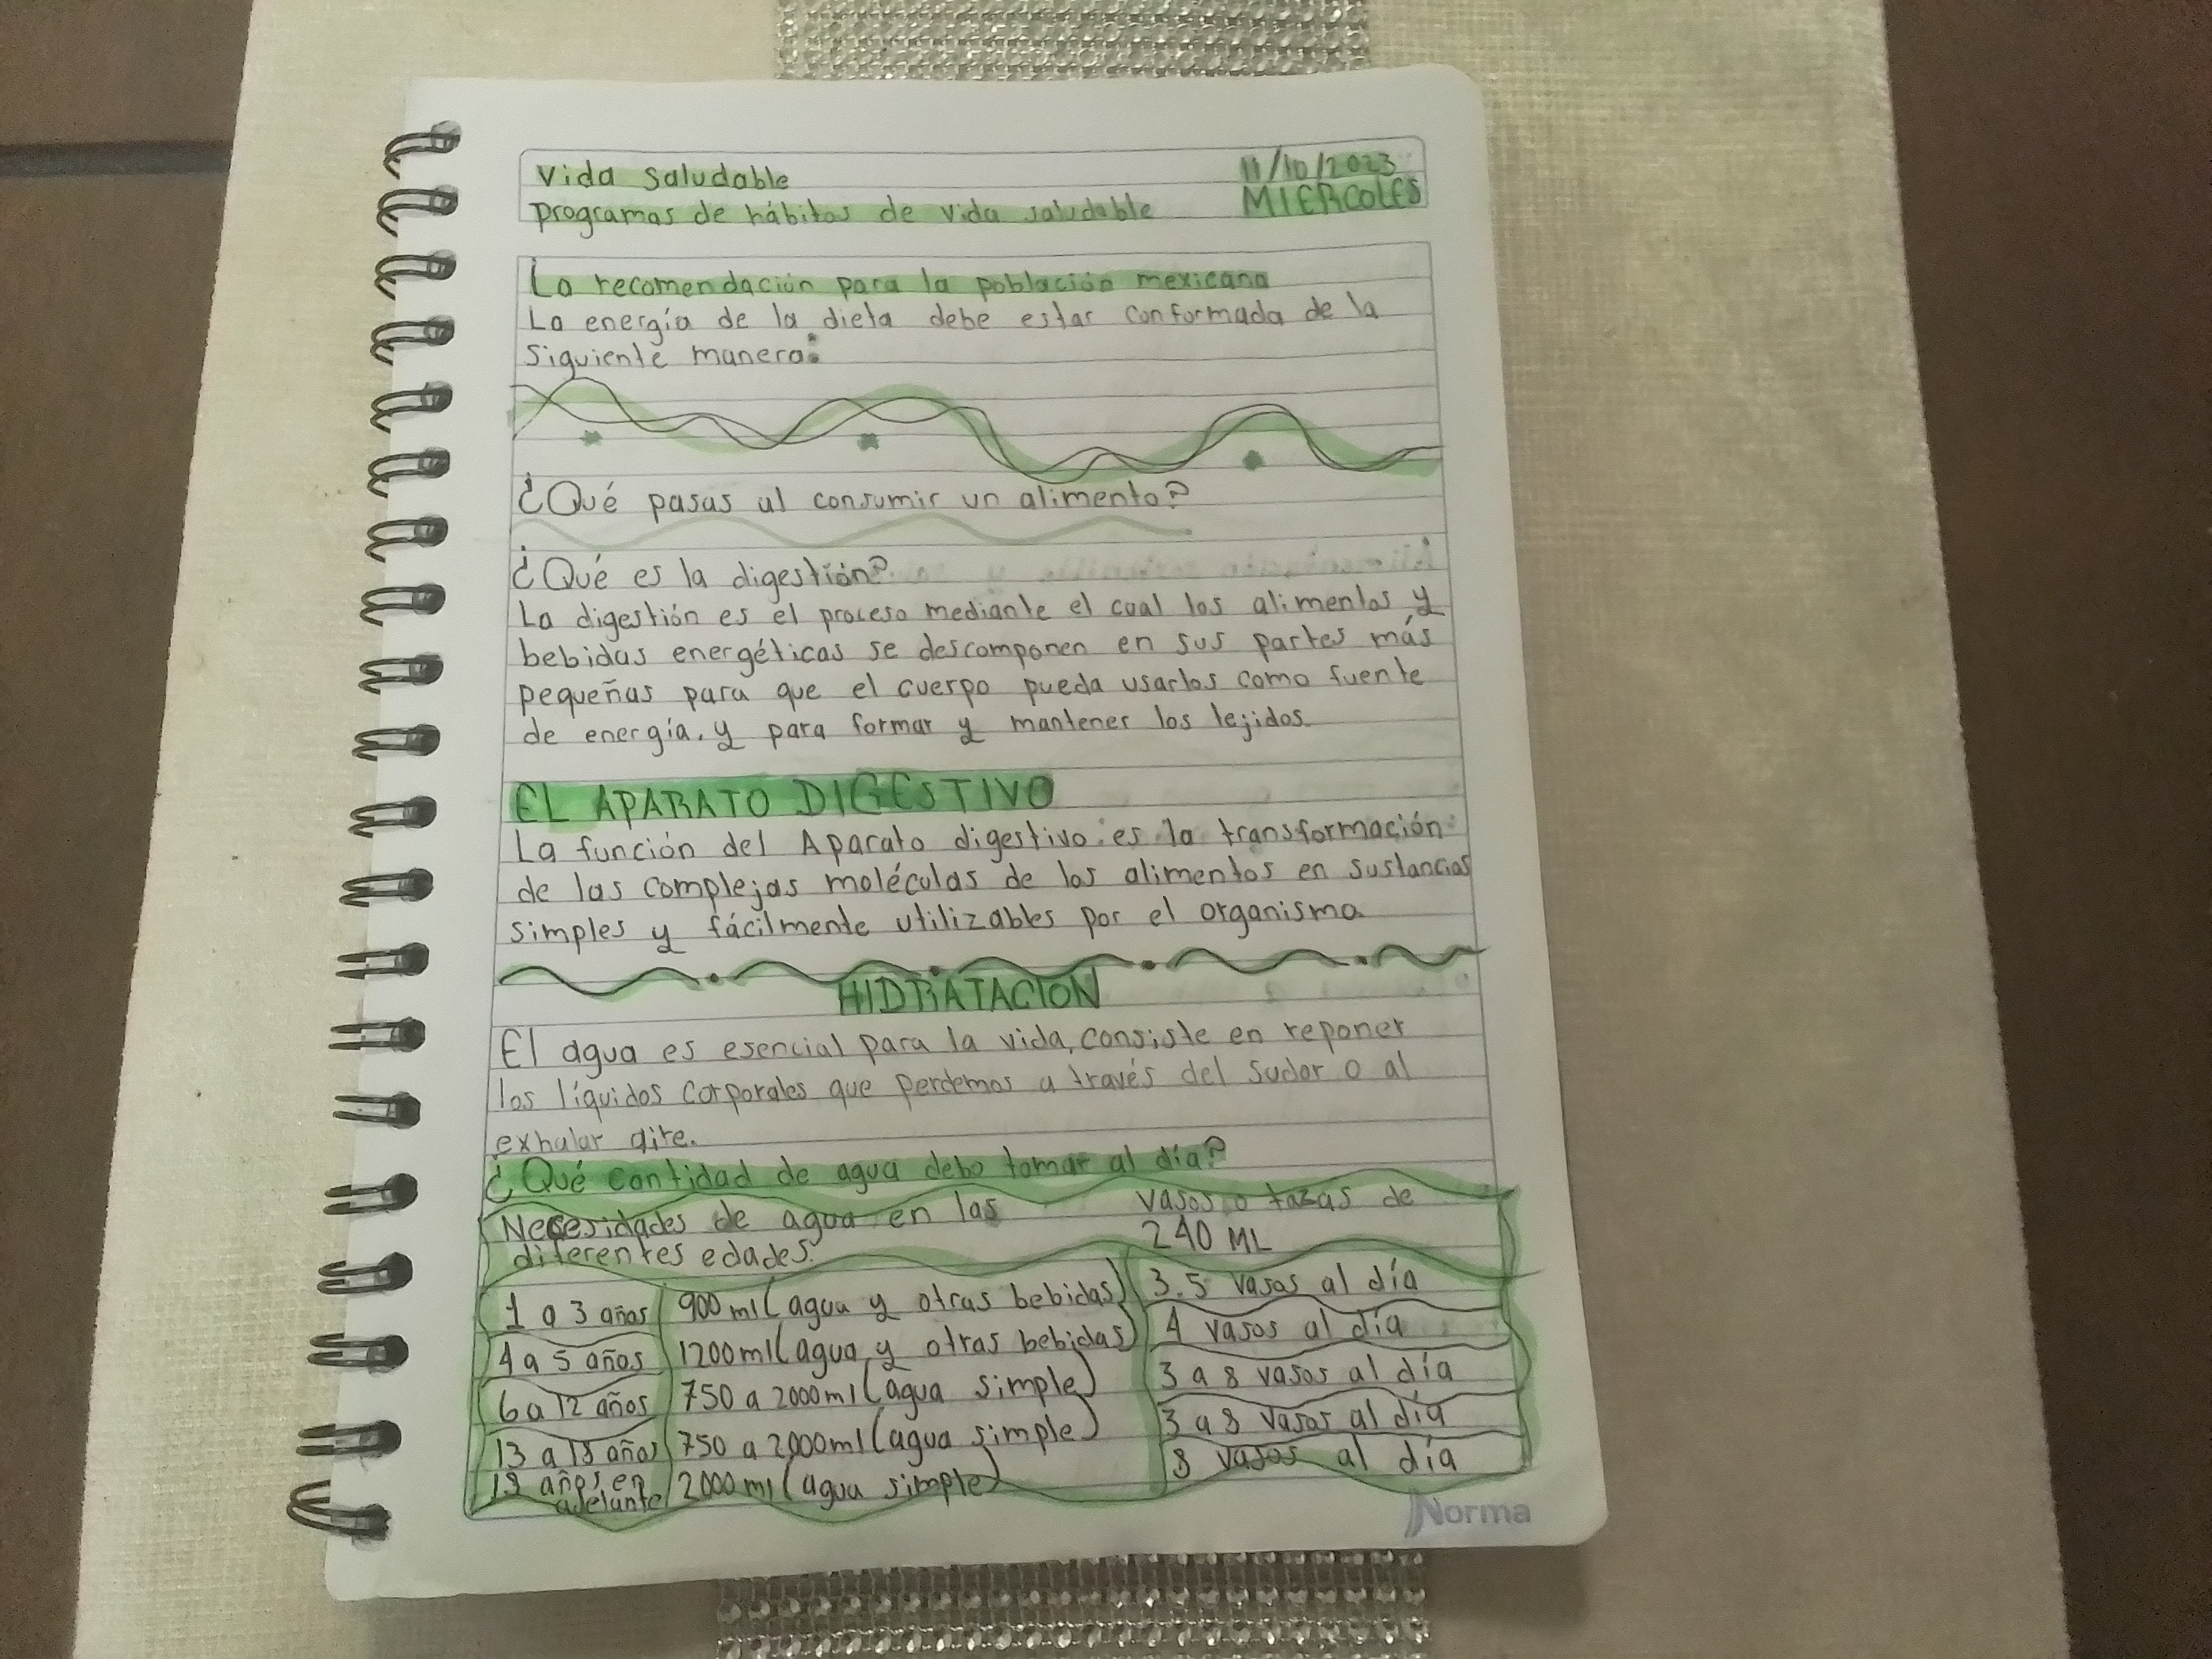 Vida saludable
11/10/2023
programas de hábitos de vida saludable
MIERCOLES
La recomendación para la población mexicana
La energía de la dieta debe estar conformada de la
siguiente manera:
¿Qué pasas al consumir un alimento?
¿Qué es la digestión?
La digestión es el proceso mediante el cual los alimentos y
bebidas energéticas se descomponen en sus partes más
pequeñas para que el cuerpo pueda usarlos como fuente
de energía, y para formar y mantener los tejidos
EL APARATO DIGESTIVO
La función del Aparato digestivo es la transformación
de las complejas moléculas de los alimentos en sustancias
simples y fácilmente utilizables por el organismo.
HIDRATACION
El agua es esencial para la vida, consiste en reponer
los líquidos corporales que perdemos a través del sudor o al
exhalar aire.
¿Qué cantidad de agua debo tomar al día?
Necesidades de agua en las
diferentes edades.
vasos o tazas de
240 ML
1 a 3 años 900 ml (agua y otras bebidas) 3.5 vasos al día
4 a 5 años 1200 ml (agua y otras bebidas) 4 vasos al día
6 a 12 años 750 a 2000 ml (agua simple) 3 a 8 vasos al día
13 a 18 años 750 a 2000 ml (agua simple) 3 a 8 vasos al día
19 años en adelante 2000 ml (agua simple) 8 vasos al día
Norma